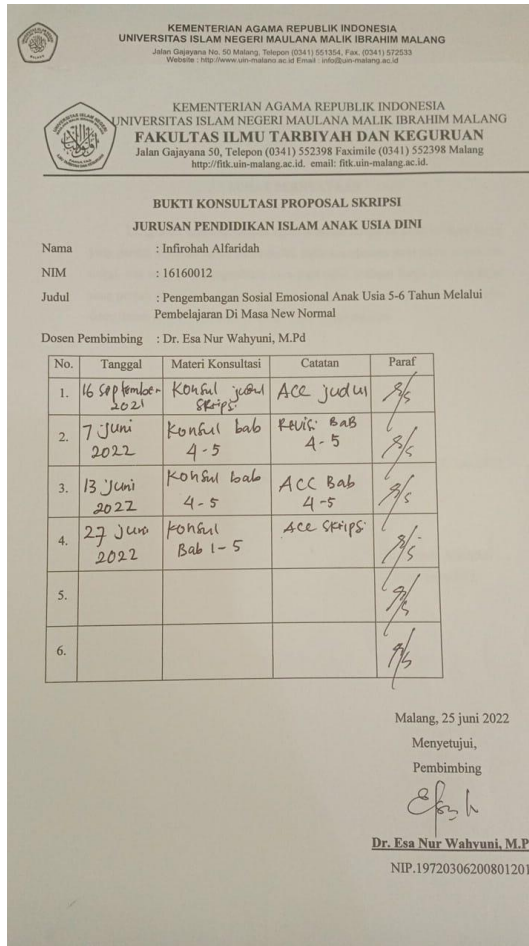 KEMENTERIAN AGAMA REPUBLIK INDONESIA
UNIVERSITAS ISLAM NEGERI MAULANA MALIK IBRAHIM MALANG
Jalan Gajayana No. 50 Malang, Telepon (0341) 551354, Fax. (0341) 572533
Website : http://www.uin-malang.ac.id Email : info@uin-malang.ac.id
KEMENTERIAN AGAMA REPUBLIK INDONESIA
UNIVERSITAS ISLAM NEGERI MAULANA MALIK IBRAHIM MALANG
FAKULTAS ILMU TARBIYAH DAN KEGURUAN
Jalan Gajayana 50, Telepon (0341) 552398 Faximile (0341) 552398 Malang
http://fitk.uin-malang.ac.id. email: fitk.uin-malang.ac.id.
BUKTI KONSULTASI PROPOSAL SKRIPSI
JURUSAN PENDIDIKAN ISLAM ANAK USIA DINI
Nama : Infirohah Alfaridah
NIM : 16160012
Judul : Pengembangan Sosial Emosional Anak Usia 5-6 Tahun Melalui
Pembelajaran Di Masa New Normal
Dosen Pembimbing : Dr. Esa Nur Wahyuni, M.Pd
No. Tanggal Materi Konsultasi Catatan Paraf
1. 16 September Konsul judul ACC judul
2021 Skripsi
2. 7 juni Konsul bab Revisi BaB
2022 4-5 4-5
3. 13 juni Konsul bab ACC Bab
2022 4-5 4-5
4. 27 juni Konsul Acc Skripsi
2022 Bab 1-5
5.
6.
Malang, 25 juni 2022
Menyetujui,
Pembimbing
Dr. Esa Nur Wahyuni, M.P
NIP.19720306200801201